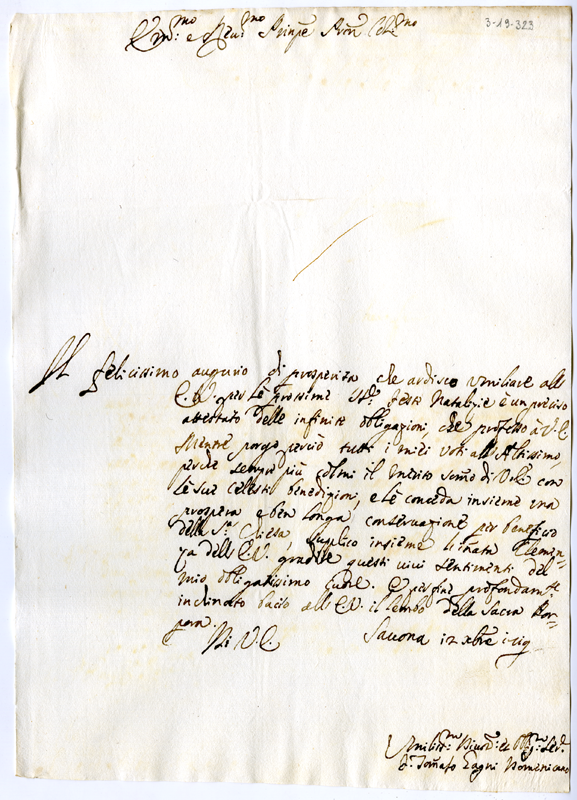 3-19-323
Em.mo e Rev.mo Prinpe Pron Col.mo
Il felicissimo augurio di prosperità che ardisco umiliare all
E.V. per le prossime SS.e feste Natalizie è un preciso
attestato delle infinite obligazioni che professo à V.E.
Mentre porgo perciò tutti i miei voti all Altissimo,
perche sempre più colmi il merito sommo di V.E. con
le sue celesti benedizioni, e le conceda insieme una
prospera e ben longa conservazione per beneficio
della S.a Chiesa, suplico insieme l'innata Clemen=
za dell E.V. gradire questi vivi sentimenti del
mio obligatissimo cuore. E per fine profondam.te
inclinato bacio all E.V. il lembo della Sacra Por=
pora.
Di V.E. Savona 12 xbre
Umilis.mo Divot.mo et Obl.mo Ser.e
F. Tomaso Domenicano